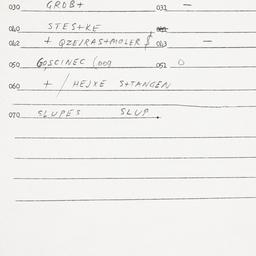 030 GROB+ 031 —
040 STES+KE 041
042 + QZEIRAS+MOLER $ 043 —
050 GOSCINEC (009 051 0
060 + / HEJXE S+TANGEN
070 SLUPES SLUP.